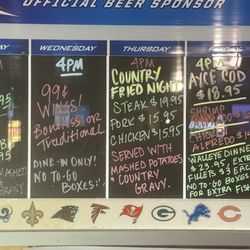 OFFICIAL BEER SPONSOR
WEDNESDAY
4PM
99¢
WINGS!
Boneless or
Traditional
DINE-IN ONLY!
NO TO-GO
BOXES!
THURSDAY
4PM
COUNTRY
FRIED NIGHT
STEAK $19.95
PORK $15.95
CHICKEN $15.95
SERVED WITH
MASHED POTATOES
& COUNTRY
GRAVY.
FRIDAY
4PM
AYCE COD
$18.95
SHRIMP
CHICKEN
ALFREDO
WALLEYE DINNER
$23.95, EXTRA
FILLETS $3 EACH
NO TO-GO BOXES
FOR EXTRA